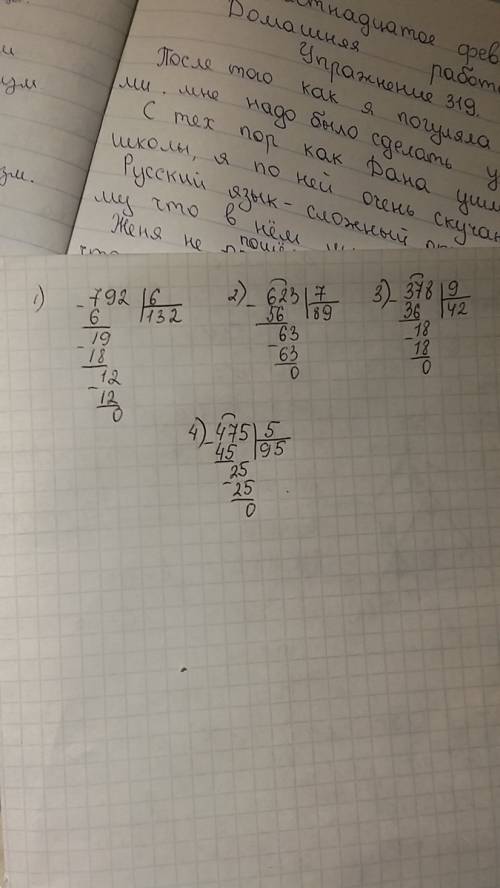 Домашняя
Упражнение 319.
После того как я погуляла
ми. мне надо было сделать у
С тех пор как Дана
школы, я по ней очень скучаю
Русский язык - сложный
му что в нём
Женя не
что
м
1) -792 | 6
6 132
-19
18
-12
12
0
2) -623 | 7
56 89
-63
63
0
3) -378 | 9
36 42
-18
18
0
4) -475 | 5
45 95
-25
25
0